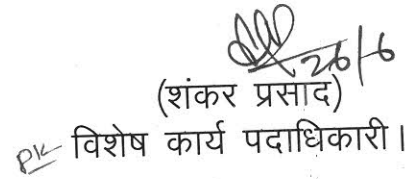 26/6
(शंकर प्रसाद)
विशेष कार्य पदाधिकारी।